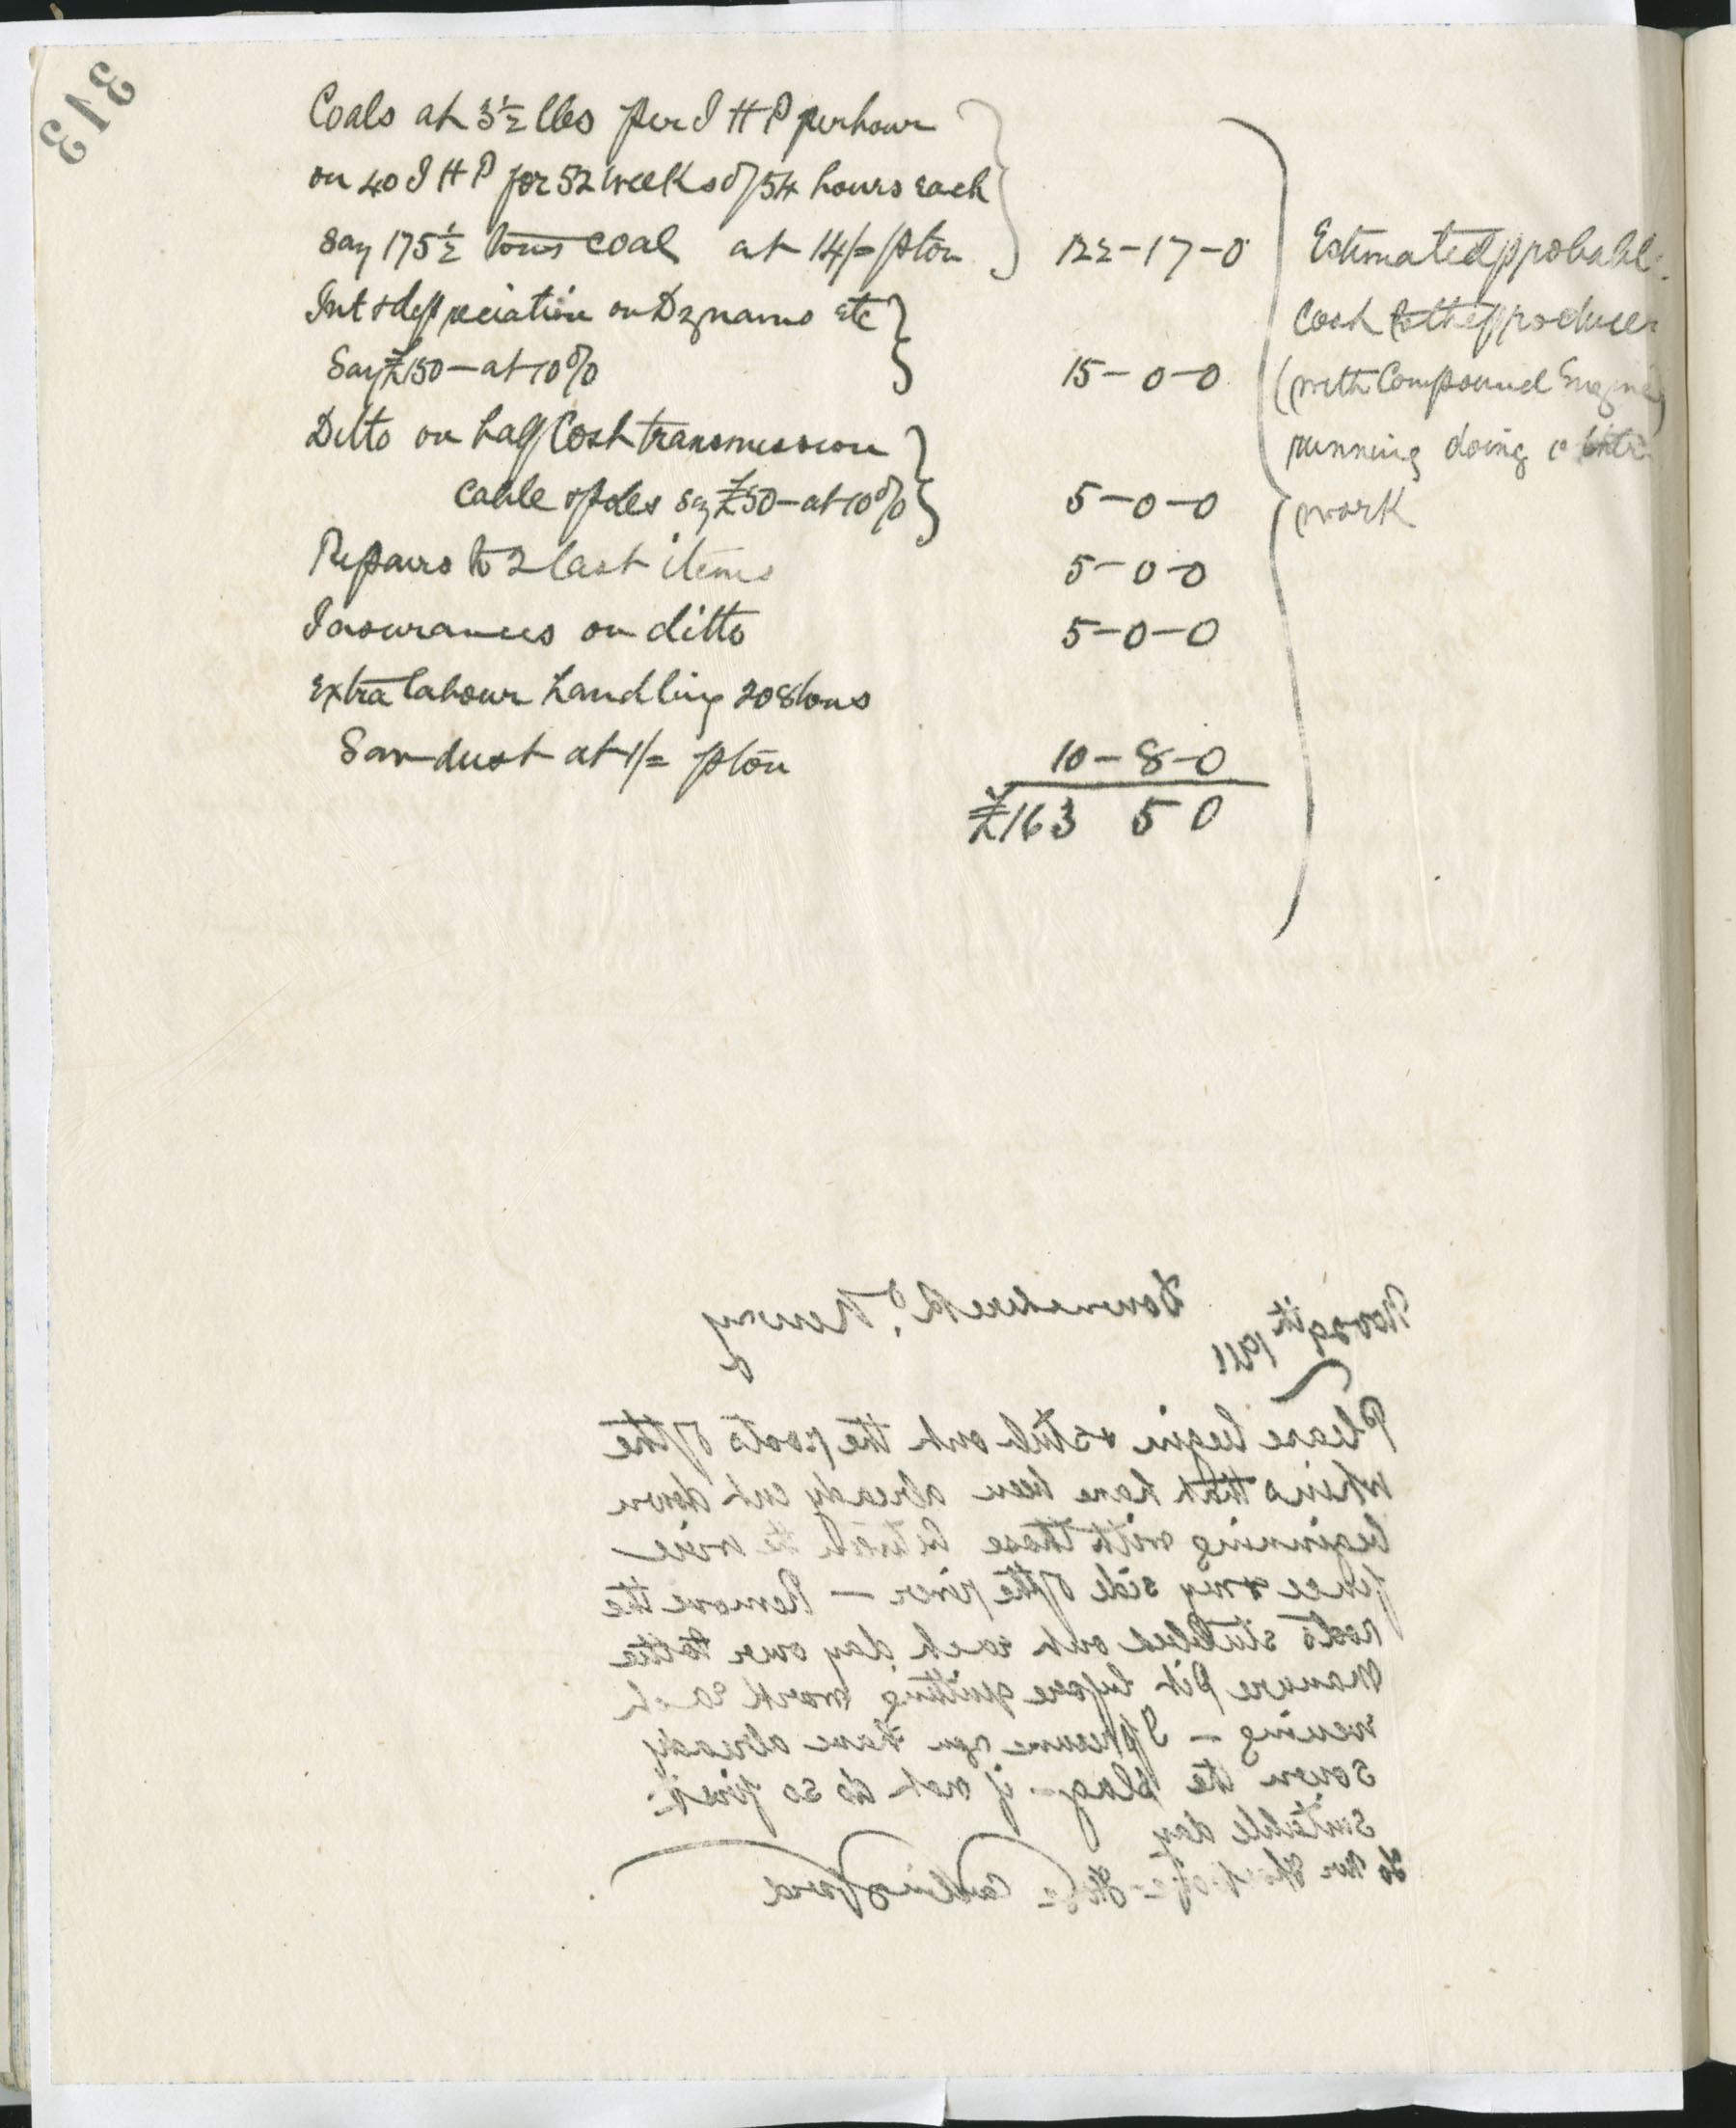 313
Coals at 3½ lbs per I H P per hour
on 40 I H P for 52 weeks of 54 hours each
say 175½ tons coal at 14/= p ton 122-17-0
Int & depreciation on Dynamo etc
Say £150 - at 10% 15-0-0
Ditto on half Cost transmission
cable & poles say £50 - at 10% 5-0-0
Repairs to 2 last items 5-0-0
Insurances on ditto 5-0-0
Extra labour handling 208 tons
Sawdust at 1/= p ton 10-8-0
£163 5 0
Estimated probable
Cost to the producer
(with Compound Engine)
running doing
work
Nov 9th 1911 Downshire Rd. Newry
Please begin & stub out the roots of the
whins that have been already cut down
beginning with those between the wire
fence & my side of the river - Remove the
roots stubbed out each day over to the
Manure Pit before quitting work each
evening - I presume you have already
sown the slag - if not do so first
suitable day
To Mr Carlingford